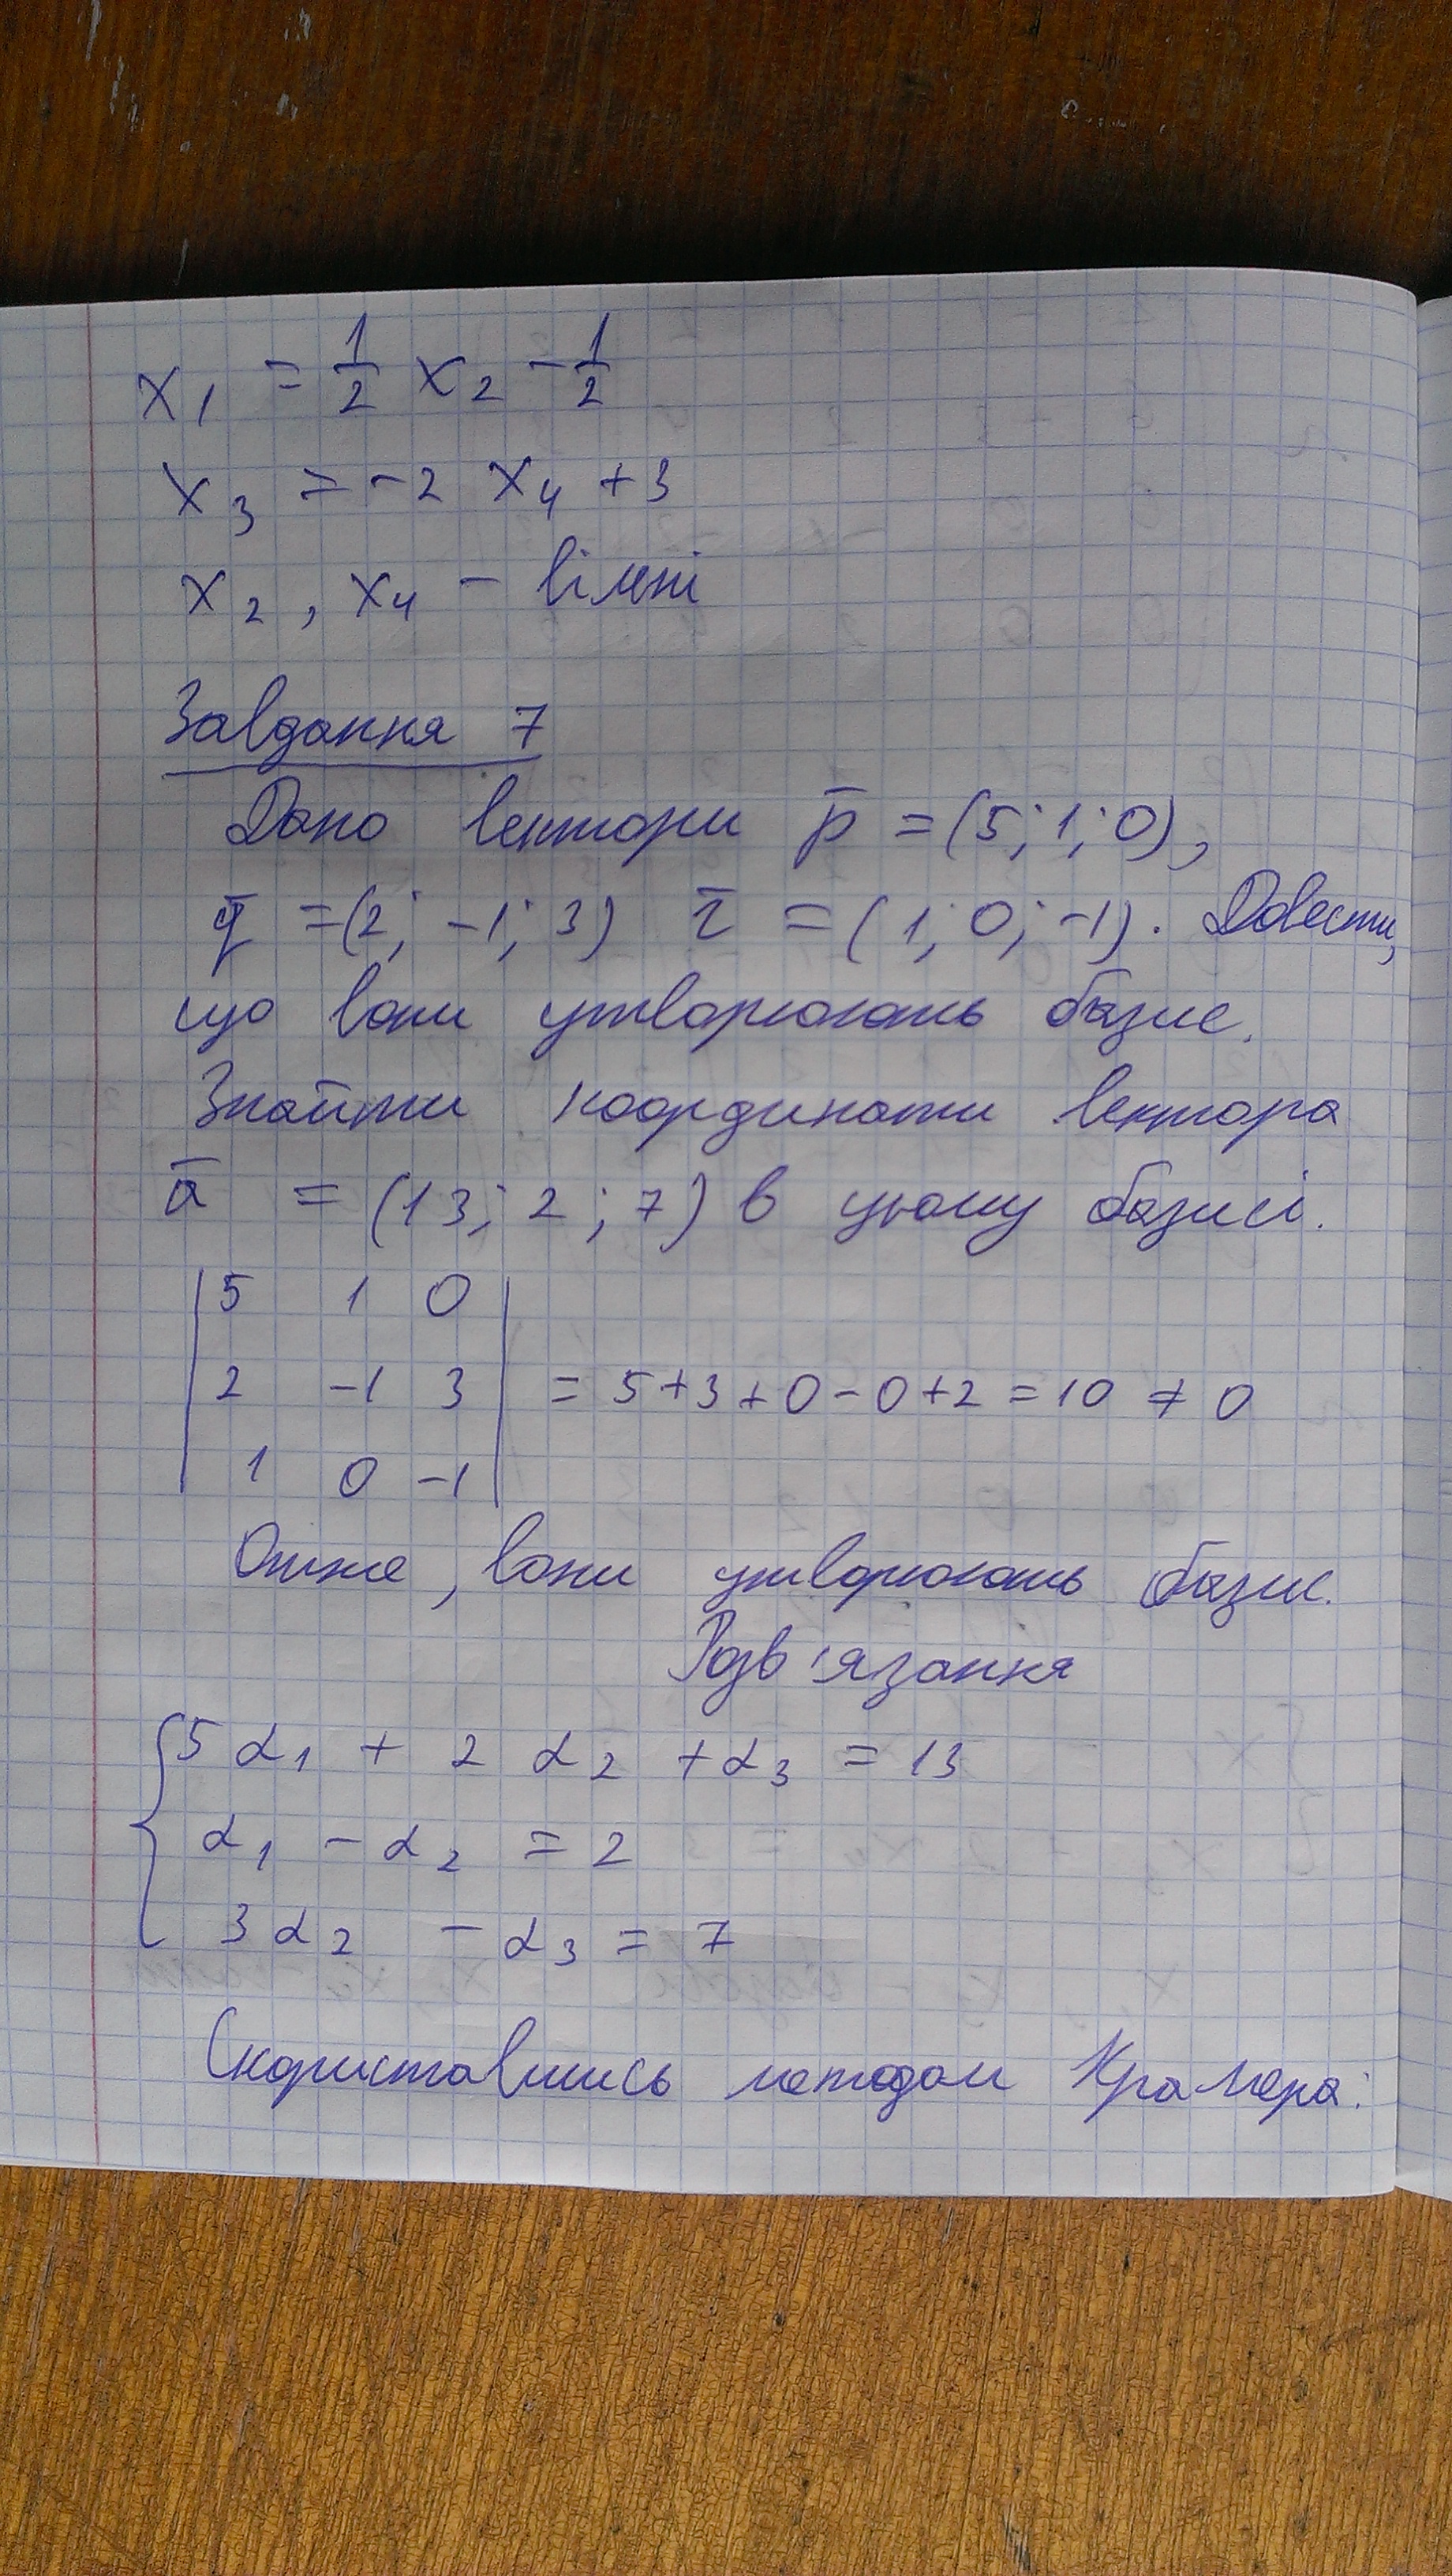 x₁ = 1/2 x₂ - 1/2
x₃ = -2 x₄ + 3
x₂, x₄ - вільні
Завдання 7
Дано вектори p̄ = (5; 1; 0),
q̄ = (2; -1; 3) r̄ = (1; 0; -1). Довести,
що вони утворюють базис.
Знайти координати вектора
ā = (13; 2; 7) в цьому базисі.
| 5 1 0 |
| 2 -1 3 | = 5+3+0-0+2 = 10 ≠ 0
| 1 0 -1 |
Отже, вони утворюють базис.
Розв'язання
5α₁ + 2α₂ + α₃ = 13
α₁ - α₂ = 2
3α₂ - α₃ = 7
Скориставшись методом Крамера: